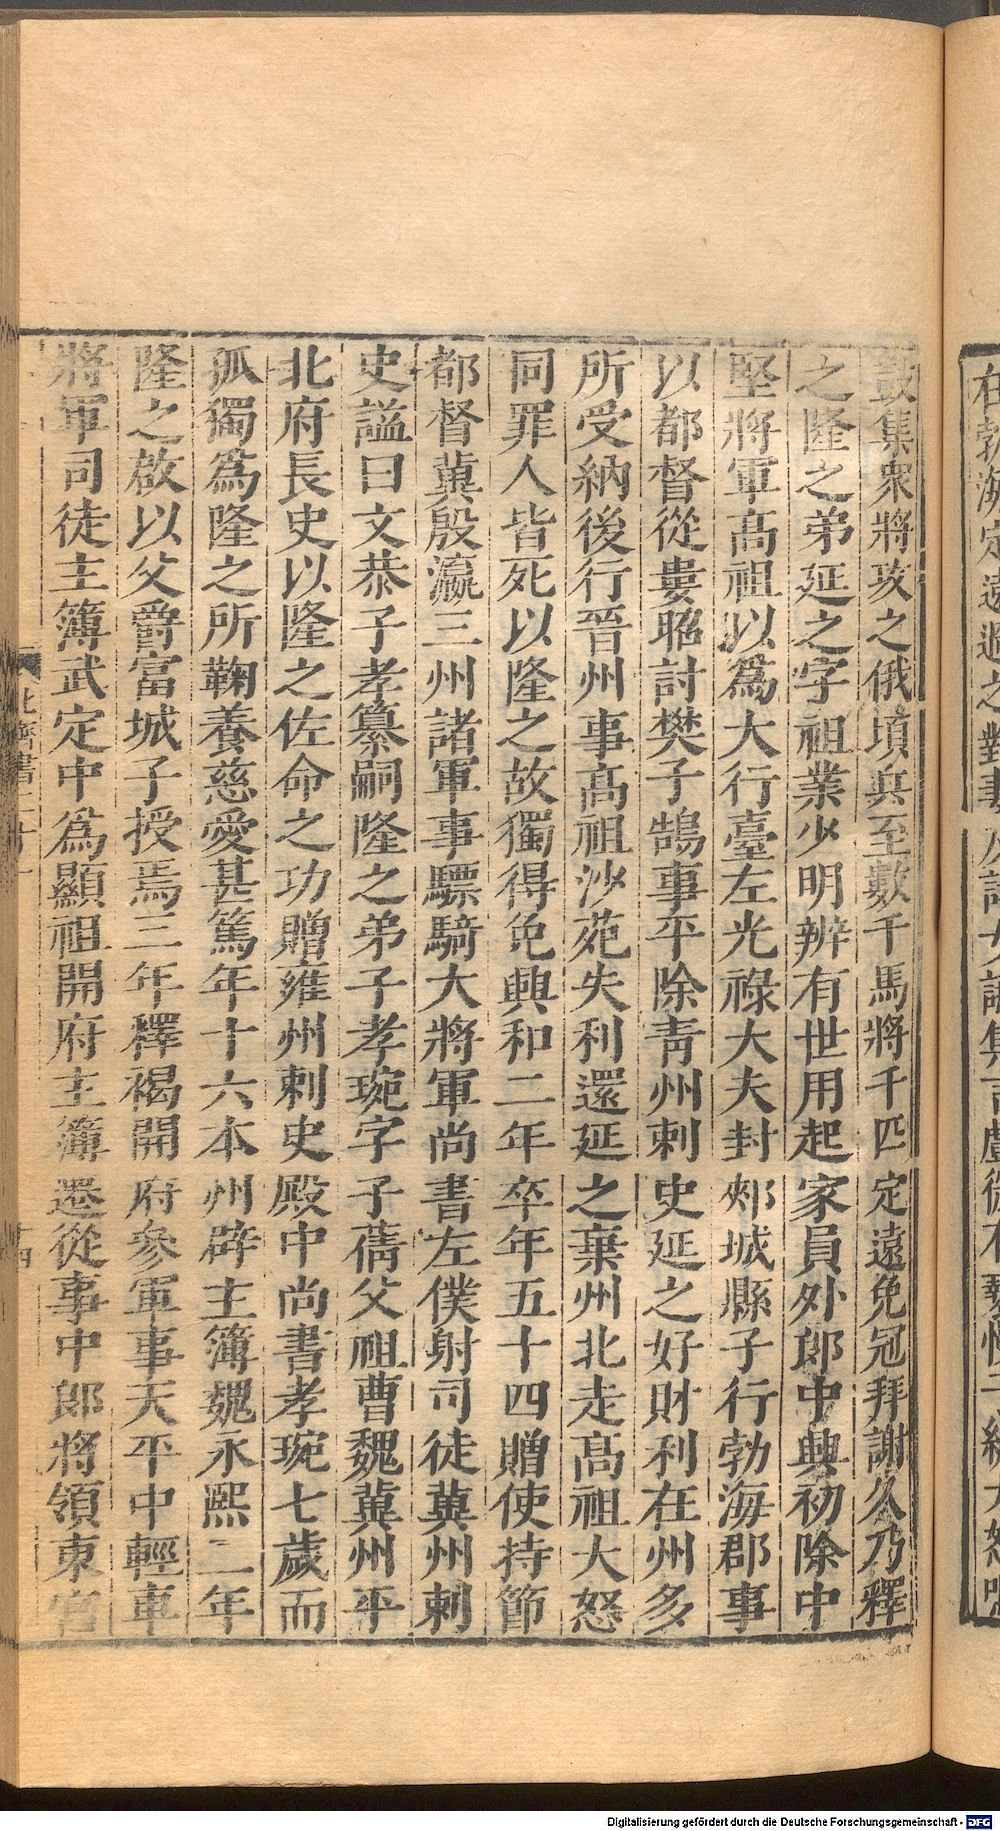 在勃海定遠過之對妻及諸女讌集言戲微有褻慢子繪大怒鳴
鼓集衆將攻之俄頃兵至數千馬將千匹定遠免冠拜謝久乃釋
之隆之弟延之字祖業少明辨有世用起家員外郎中興初除中
堅將軍高祖以爲大行臺左光祿大夫封郟城縣子行勃海郡事
以都督從婁昭討樊子鵠事平除青州刺史延之好財利在州多
所受納後行晉州事高祖沙苑失利還延之棄州北走高祖大怒
同罪人皆死以隆之故獨得免興和二年卒年五十四贈使持節
都督冀殷瀛三州諸軍事驃騎大將軍尚書左僕射司徒冀州刺
史諡曰文恭子孝纂嗣隆之弟子孝琬字子蒨父祖曹魏冀州平
北府長史以隆之佐命之功贈雍州刺史殿中尚書孝琬七歲而
孤獨爲隆之所鞠養慈愛甚篤年十六本州辟主簿魏永熙二年
隆之啟以父爵富城子授焉三年釋褐開府參軍事天平中輕車
將軍司徒主簿武定中爲顯祖開府主簿遷從事中郎將領東宮
北齊書二十一
四
Digitalisierung gefördert durch die Deutsche Forschungsgemeinschaft - DFG